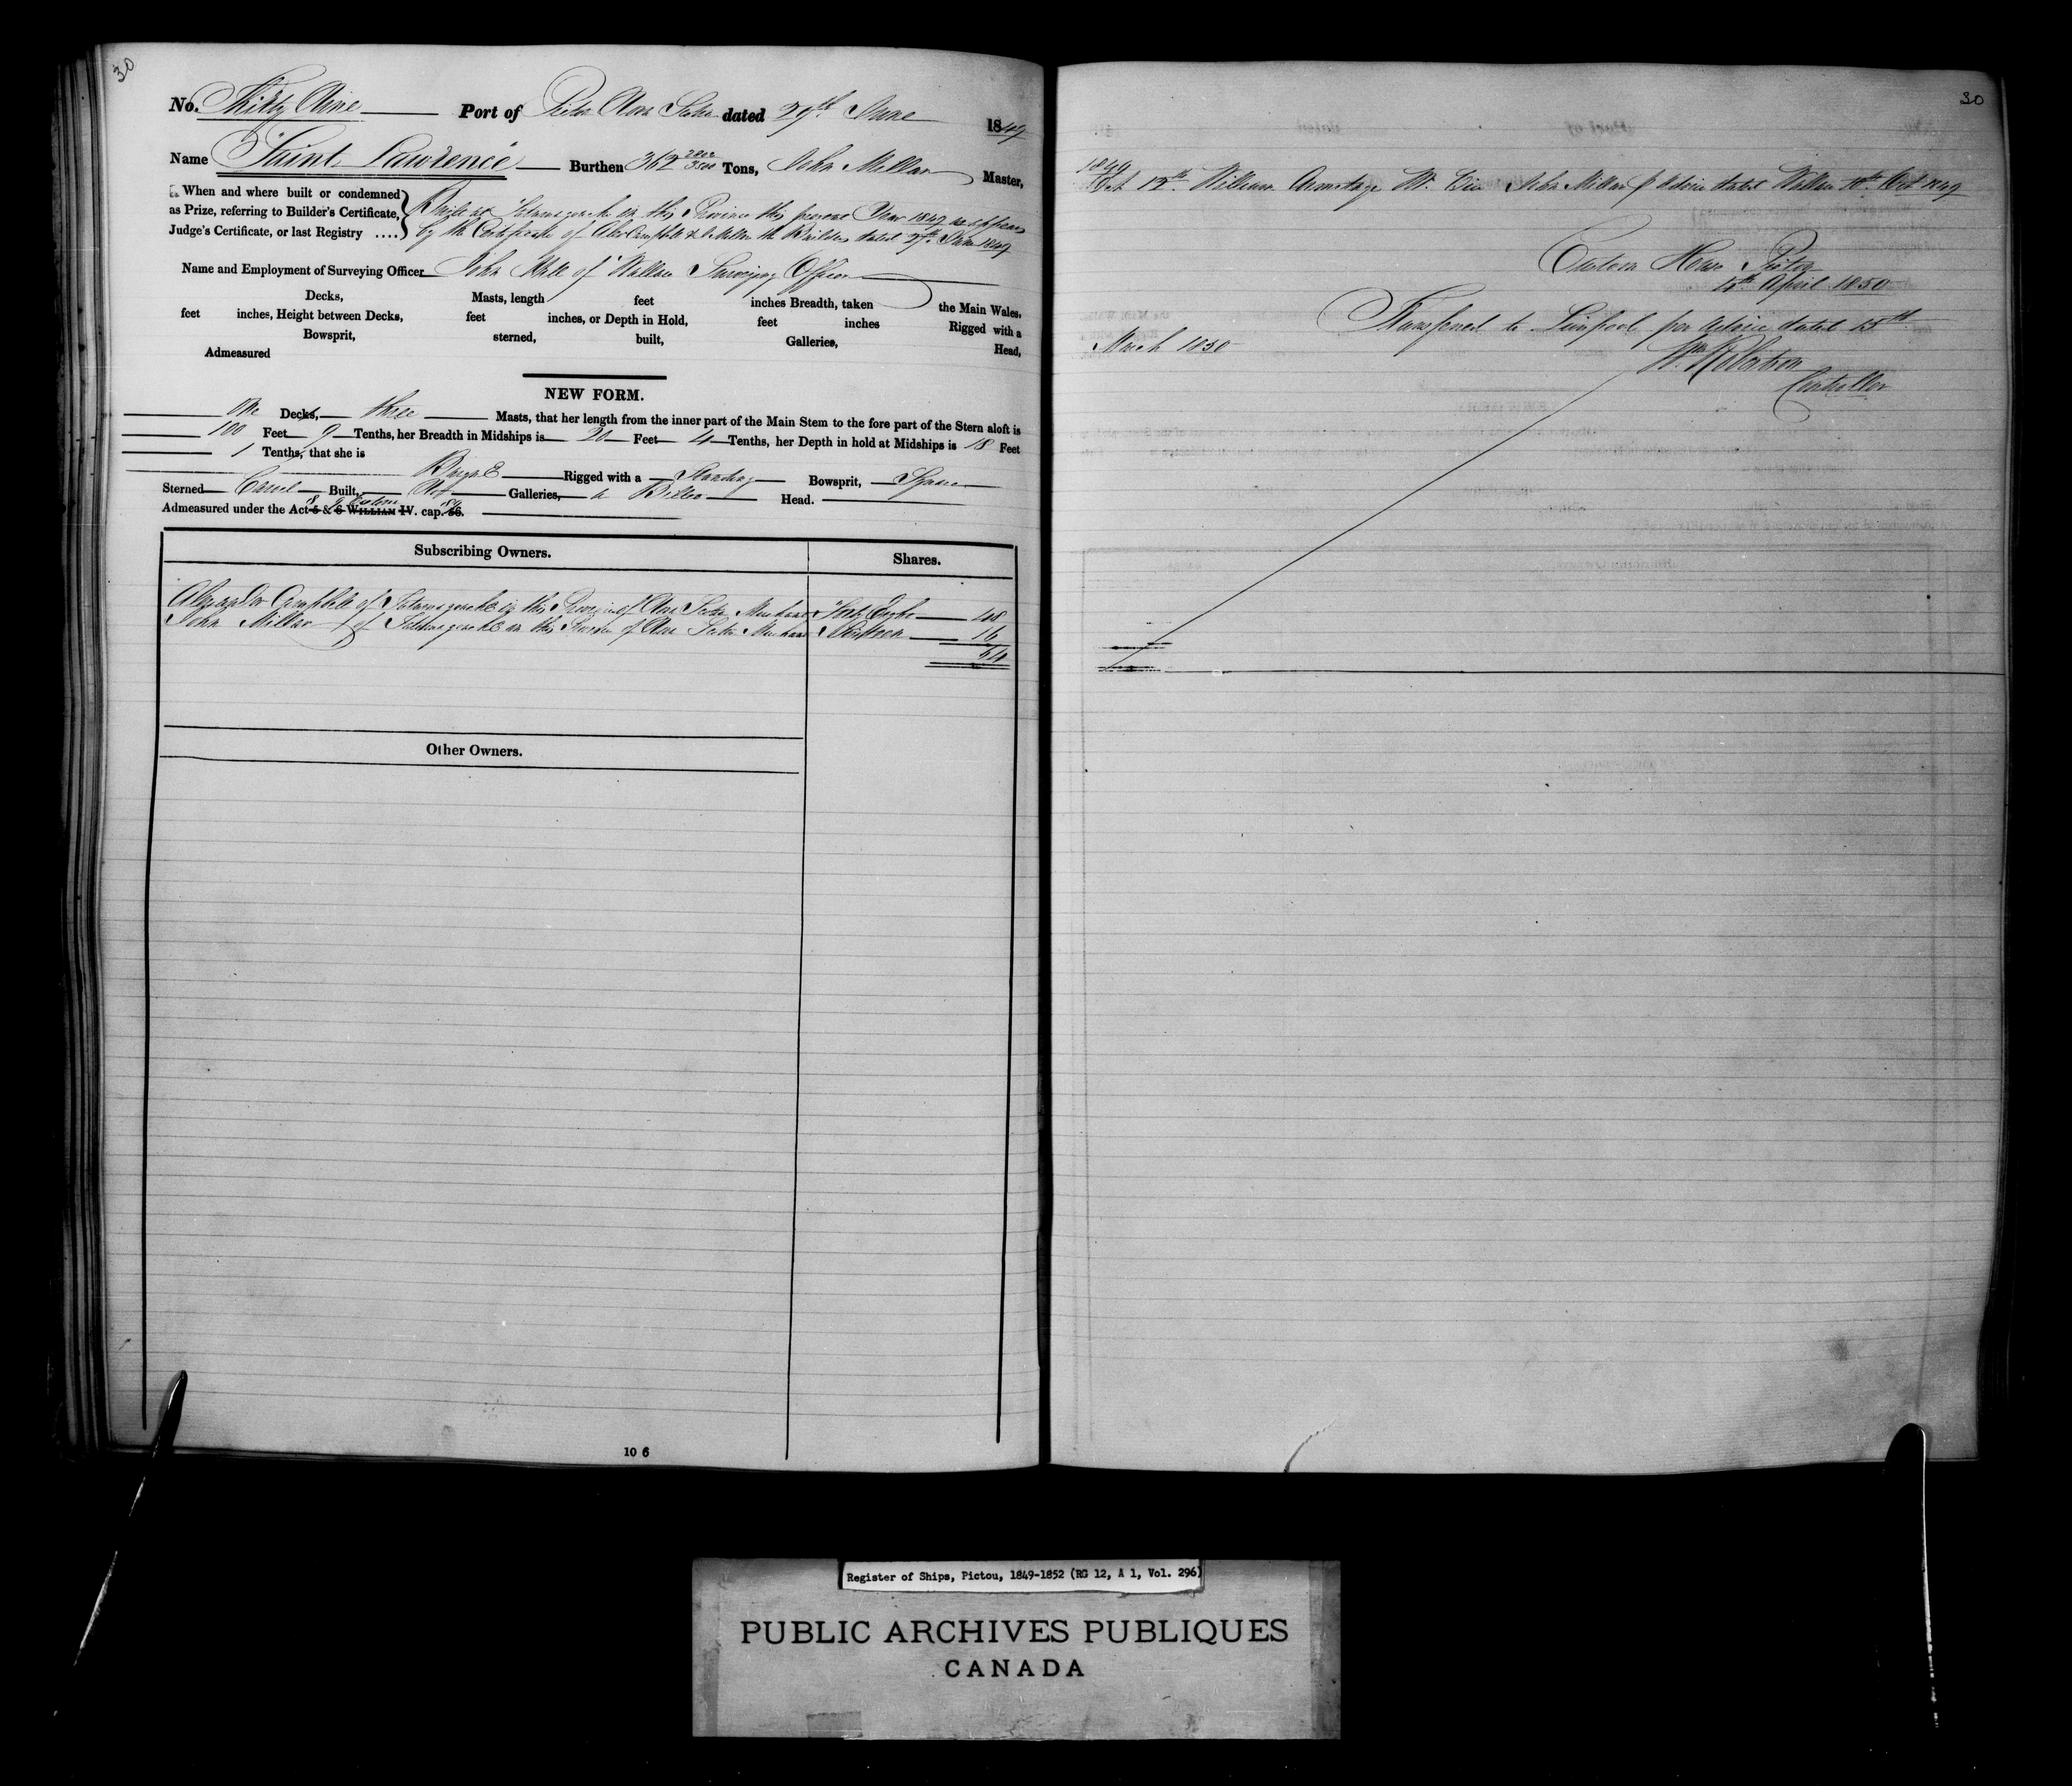 30
No. Thirty Nine Port of Pictou Nova Scotia dated 29th June 1849
Name "Saint Lawrence" Burthen 362 2802/3500 Tons, John Millar Master,
When and where built or condemned
as Prize, referring to Builder's Certificate,
Judge's Certificate, or last Registry ....
Built at Tatamagouche in this Province this present Year 1849 as appears
by the Certificate of Alexr Campbell & J. Millar the Builders dated 27th June 1849
Name and Employment of Surveying Officer John of Wallace Surveying Officer
Decks, Masts, length feet inches Breadth, taken the Main Wales,
feet inches, Height between Decks, feet inches, or Depth in Hold, feet inches Rigged with a
Bowsprit, sterned, built, Galleries, Head,
Admeasured
NEW FORM.
One Decks, three Masts, that her length from the inner part of the Main Stem to the fore part of the Stern aloft is
100 Feet 9 Tenths, her Breadth in Midships is Feet 4 Tenths, her Depth in hold at Midships is 18 Feet
1 Tenths, that she is
Barque Rigged with a Standing Bowsprit, Square
Sterned Carvel Built, No Galleries, a Billet Head.
Admeasured under the Act 5 & 6 WILLIAM IV. cap. 56.
8 & 9 Victoria 89
Subscribing Owners. Shares.
Alexander Campbell of Tatamagouche in this Province of Nova Scotia Merchant Forty Eight 48
John Millar of Tatamagouche in this Province of Nova Scotia Merchant Sixteen 16
64
Other Owners.
10 6
30
1849
Oct 12th William Armitage M. Vice John Millar p Advice dated Wallace 10th Oct 1849
Custom House Pictou
April 1850
Transferred to Liverpool per Advice dated 15th
March 1850
Wm Robertson
Controller
Register of Ships, Pictou, 1849-1852 (RG 12, A 1, Vol. 296)
PUBLIC ARCHIVES PUBLIQUES
CANADA